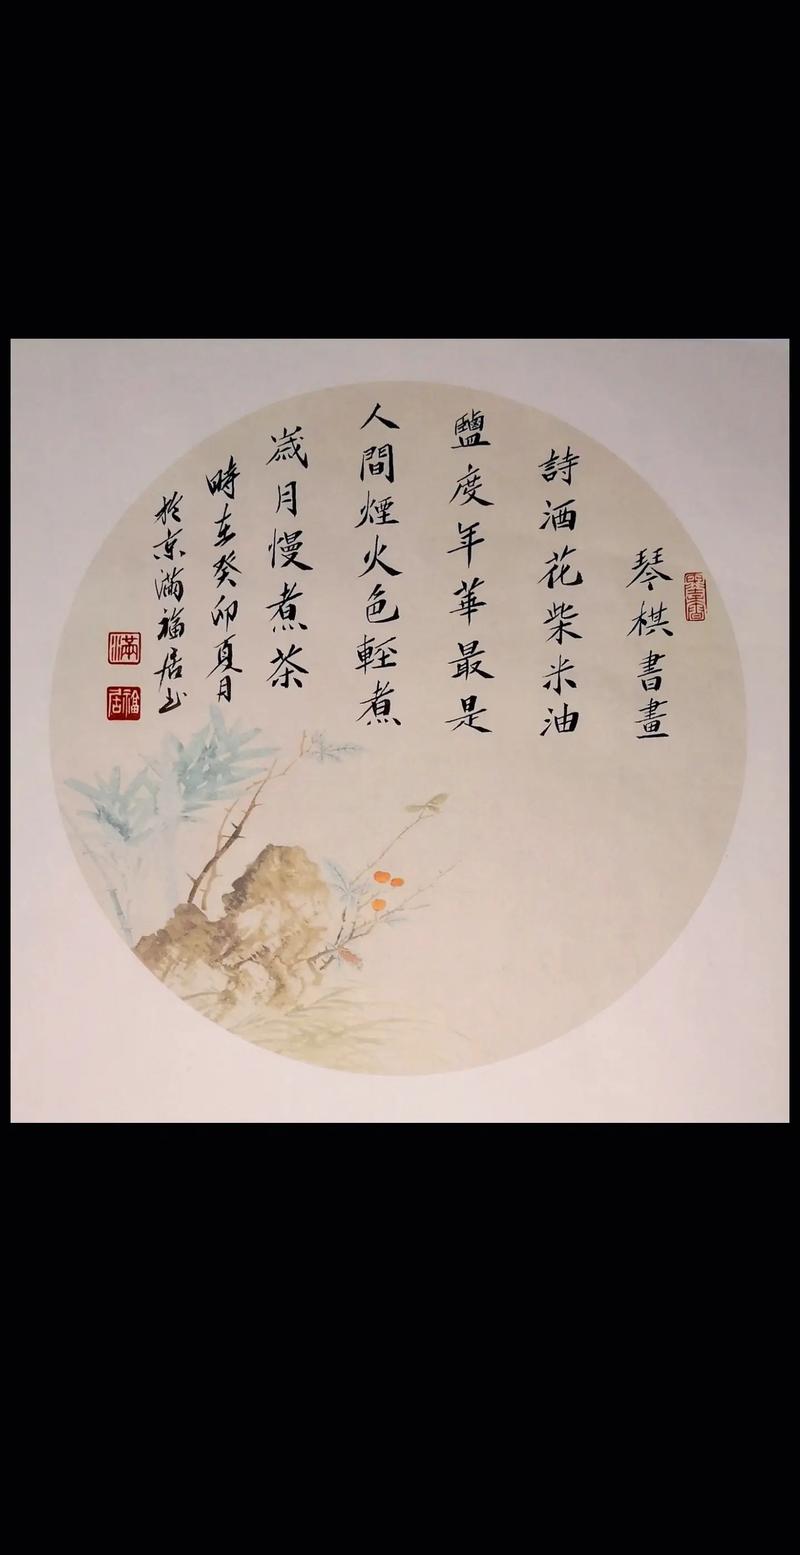 琴棋書畫
詩酒花柴米油
鹽度年華最是
人間煙火色輕煮
歲月慢煮茶
時在癸卯夏月
於京滿福居書
滿
福居